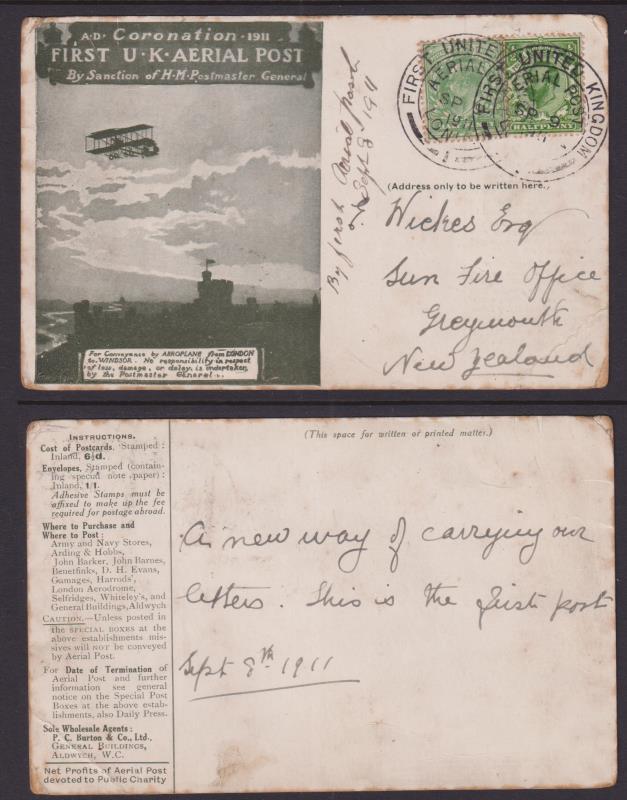 A·D· Coronation · 1911
FIRST U·K·AERIAL POST
By Sanction of H·M·Postmaster General
For Conveyance by AEROPLANE from LONDON
to WINDSOR. No responsibility in respect
of loss, damage, or delay, is undertaken
by the Postmaster General.
By first Aerial post
Sept 8 1911
FIRST UNITED
AERIAL
SP
FIRST UNITED KINGDOM
AERIAL POST
SP 9
HALFPENNY
(Address only to be written here.)
Wickes Esq
Sun Fire Office
Greymouth
New Zealand
INSTRUCTIONS.
Cost of Postcards, Stamped:
Inland, 6½d.
Envelopes, Stamped (contain-
ing special note paper):
Inland, 1/1.
Adhesive Stamps must be
affixed to make up the fee
required for postage abroad.
Where to Purchase and
Where to Post:
Army and Navy Stores,
Arding & Hobbs,
John Barker, John Barnes,
Benetfinks, D. H. Evans,
Gamages, Harrods',
London Aerodrome,
Selfridges, Whiteley's, and
General Buildings, Aldwych
CAUTION.—Unless posted in
the SPECIAL BOXES at the
above establishments mis-
sives will NOT be conveyed
by Aerial Post.
For Date of Termination of
Aerial Post and further
information see general
notice on the Special Post
Boxes at the above estab-
lishments, also Daily Press.
Sole Wholesale Agents:
P. C. Burton & Co., Ltd.,
GENERAL BUILDINGS,
ALDWYCH, W.C.
Net Profits of Aerial Post
devoted to Public Charity
(This space for written or printed matter.)
A new way of carrying our
letters. This is the first post
Sept 8th 1911